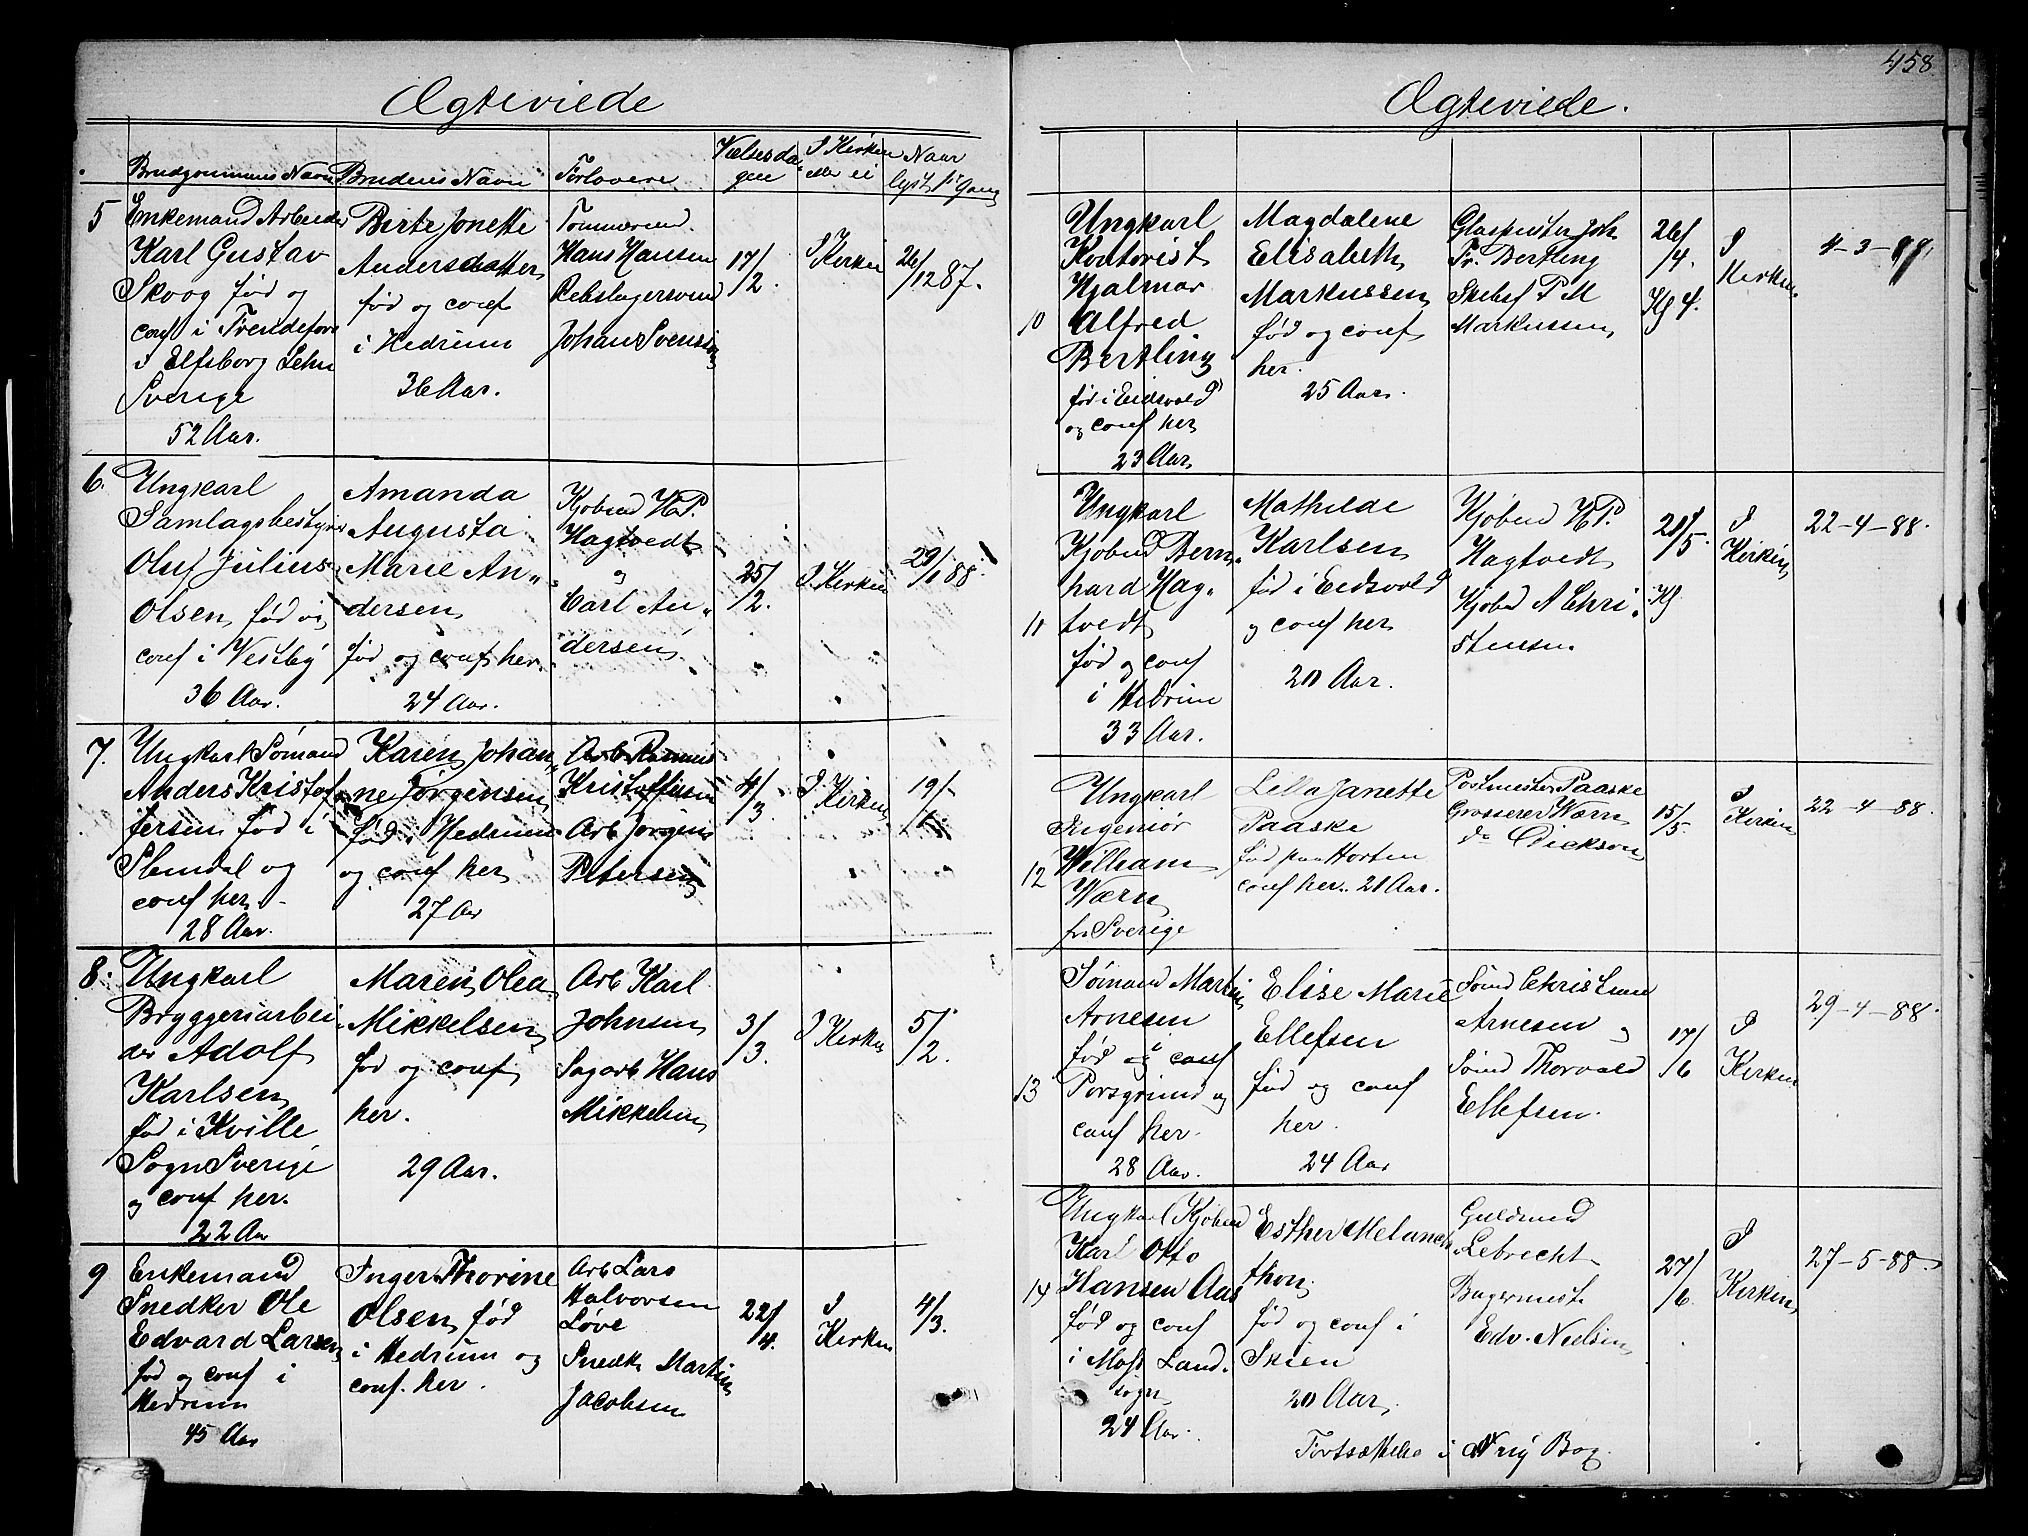 Ægteviede
Brudgommens Navn Brudens Navn Forlovere Vielsesda- gen I Kirken eller ei Naar lyst 1ste Gang
5
Enkemand Arbeider
Karl Gustav
Skoog fød og
conf i
i Elfsborg Lehn
Sverige
52 Aar.
Birte Jonette
Andersdatter
fød og conf
i Hedrum
36 Aar.
Tømmermd.
Hans Hansen
Rebslagersvend
Johan Svensson
17/2.
I Kirken
26/12 87.
6.
Ungkarl
Samlagsbestyrer
Oluf Julius
Olsen, fød og
conf i Vestby
36 Aar.
Amanda
Augusta
Marie An-
dersen
fød og conf her.
24 Aar.
Kjøbmd H.P.
Hagtvedt
og
Carl An-
dersen
25/2.
I Kirken
29/1 88.
7.
Ungkarl Sømand
Anders Kristof-
fersen fød i
Slemdal og
conf her.
28 Aar.
Karen Johan-
ne Jørgensen
fød i Hedrum
og conf her
27 Aar
Arb Rasmus
Kristoffersen
Arb Jørgen
Petersen
4/3.
I Kirken
19/
8.
Ungkarl
Bryggeriarbei-
der Adolf
Karlsen
fød i Kville
Sogn Sverige
og conf her.
22 Aar
Maren Olea
Mikkelsen
fød og conf
her.
29 Aar.
Arb Karl
Johnsen
Sagarb Hans
Mikkelsen
3/3.
I Kirken
5/2.
9
Enkemand
Snedker Ole
Edvard Larsen
fød og conf i
Hedrum
45 Aar
Inger Thorine
Olsen, fød
i Hedrum og
conf. her.
Arb Lars
Halvorsen
Løve
Snedk. Martin
Jacobsen
22/4.
I
Kirken
4/3.
458
Ægteviede.
10
Ungkarl
Kontorist
Hjalmar
Alfred
Bertling
fød i Eidsvold
og conf her
23 Aar
Magdalene
Elisabeth
Markussen
fød og conf
her.
25 Aar.
Glasmester Joh
Fr. Bertling
Skibsf P M
Markussen
26/4.
Kl 4.
I
Kirken
4-3-88
11
Ungkarl
Kjøbmd Bern-
hard Hag-
tvedt
fød og conf
i Hedrum
33 Aar.
Mathilde
Karlsen
fød i Eidsvold
og conf her
20 Aar.
Kjøbmd H P.
Hagtvedt
Kjøbmd A Chri-
stensen.
21/5.
Kl
I
Kirken
22-4-88.
12
Ungkarl
Ingeniør
William
Wærn
fra Sverige
Lella Janette
Paaske
fød paa Horten
conf her. 21 Aar.
Postmester Paaske
Grosserer Wærn
do Dickson
15/5.
I
Kirken
22-4-88.
13
Sømand Martin
Arnesen
fød i
Porsgrund og
conf her.
28 Aar.
Elise Marie
Ellefsen
fød og conf
her.
24 Aar
Sømd Christian
Arnesen og
Sømd Thorvald
Ellefsen.
17/6
I
Kirken
29-4-88.
14
Ungkarl Kjøbmd
Karl Otto
Hansen Aas
fød og conf
i Moss Land-
sogn
24 Aar.
Esther Melanch-
thon.
fød og conf i
Skien
20 Aar.
Guldsmed
Lebrecht
Bagermest.
Edv. Nielsen
27/6.
I
Kirken
27-5-88
Fortsættelse i Ny Bog.